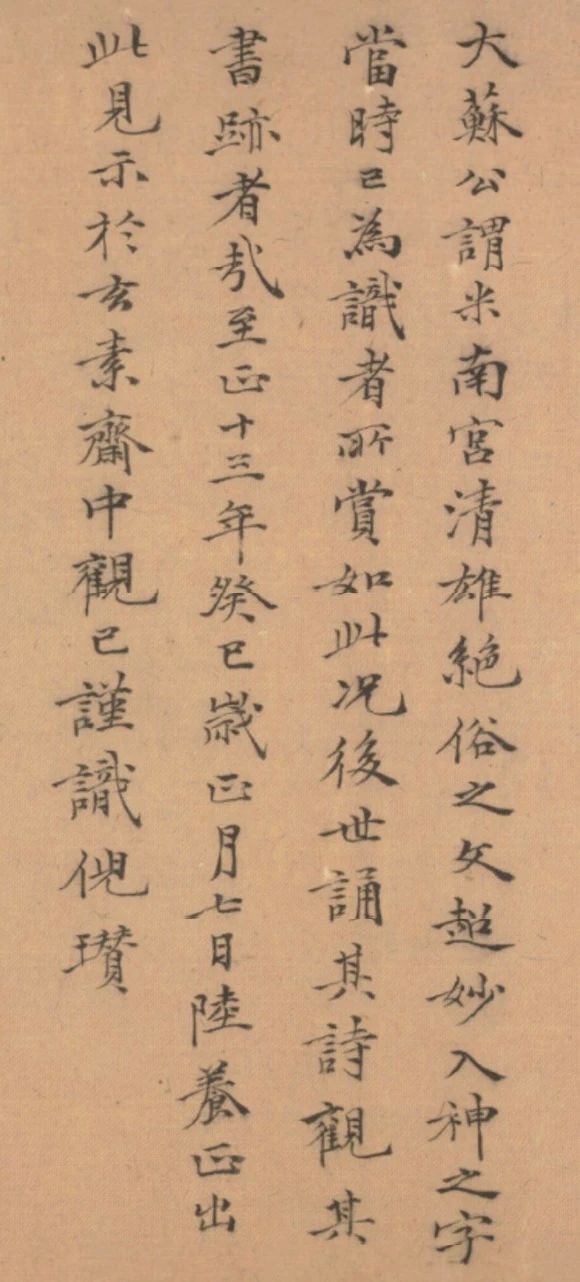 大蘇公謂米南宮清雄絶俗之文超妙入神之字
當時已為識者所賞如此况後世誦其詩觀其
書跡者哉至正十三年癸巳歲正月七日陸養正出
此見示於玄素齋中觀已謹識倪瓚